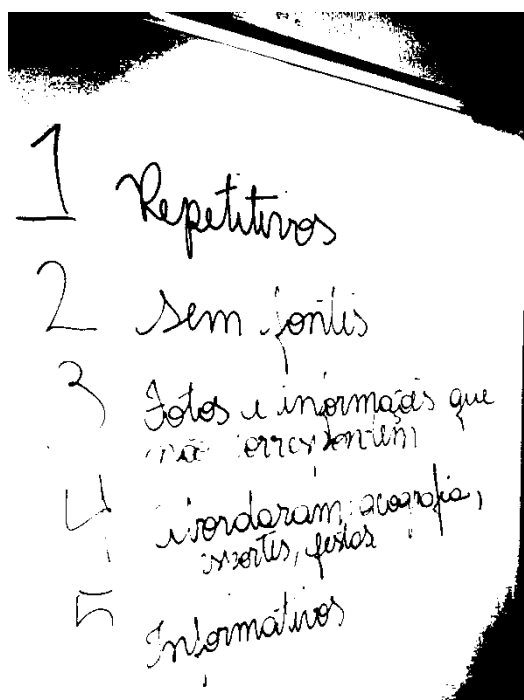 1 Repetitivos
2 sem fontes
3 Fotos e informações que
não correspondem
4 abordaram, geografia,
esportes, festas
5 Informativos